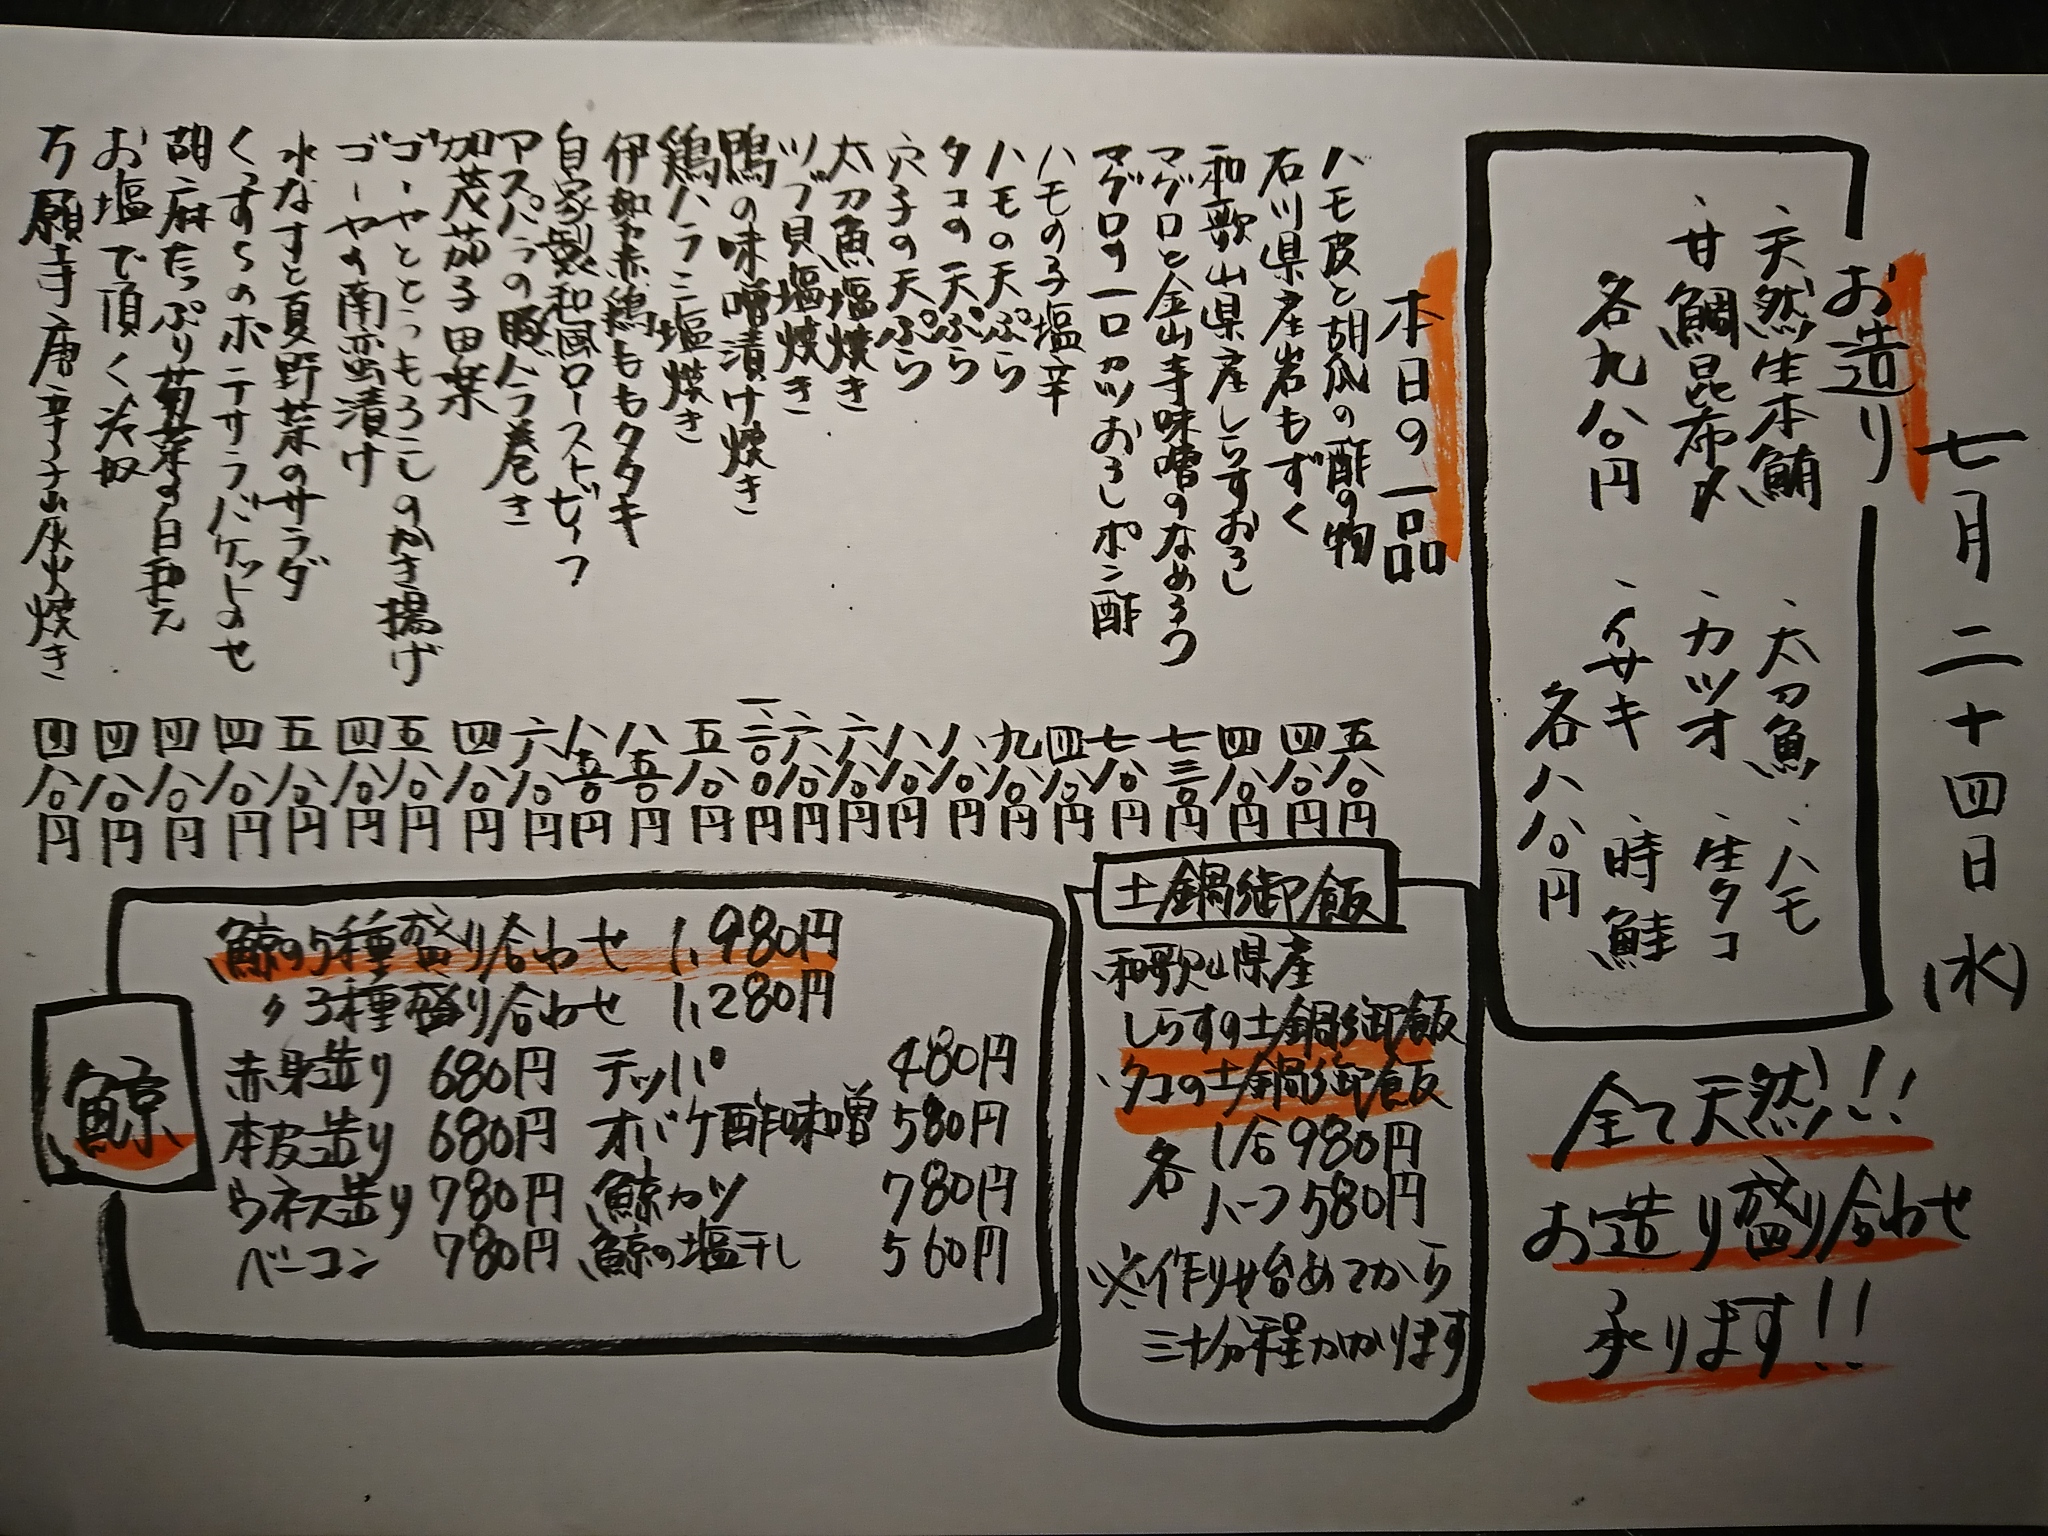 七月二十四日(水)
お造り
、天然生本鮪 、太刀魚 、ハモ
、甘鯛昆布〆 、カツオ 、生タコ
各九八〇円 、イサキ 時鮭
各八八〇円
全て天然!!
お造り盛り合わせ
承ります!!
本日の一品
ハモ皮と胡瓜の酢の物 五八〇円
石川県産岩もずく 四八〇円
和歌山県産しらすおろし 四八〇円
マグロと金山寺味噌のなめろう 七三〇円
マグロの一口カツおろしポン酢 七八〇円
ハモの子塩辛 四八〇円
ハモの天ぷら 九八〇円
タコの天ぷら 八八〇円
穴子の天ぷら 八八〇円
太刀魚塩焼き 六八〇円
ツブ貝塩焼き 六八〇円
鴨の味噌漬け焼き 円
鶏ハラミ塩焼き 五八〇円
伊勢赤鶏ももタタキ 八五〇円
自家製和風ローストビーフ 八五〇円
アスパラの豚バラ巻き 六八〇円
加茂茄子田楽 四八〇円
ゴーヤととうもろこしのかき揚げ 五八〇円
ゴーヤの南蛮漬け 四八〇円
水なすと夏野菜のサラダ 五八〇円
のポテサラバケットのせ 四八〇円
胡麻たっぷり菊菜の白和え 四八〇円
お塩で頂く冷奴 四八〇円
万願寺唐辛子炭火焼き 四八〇円
土鍋御飯
、和歌山県産
しらすの土鍋御飯
、タコの土鍋御飯
各 1合980円
ハーフ580円
※作り始めてから
三十分程かかります
鯨
鯨の5種盛り合わせ 1,980円
〃3種盛り合わせ 1,280円
赤身造り 680円 テッパ 480円
本皮造り 680円 オバケ酢味噌 580円
ウネス造り 780円 鯨カツ 780円
ベーコン 780円 鯨の塩干し 560円